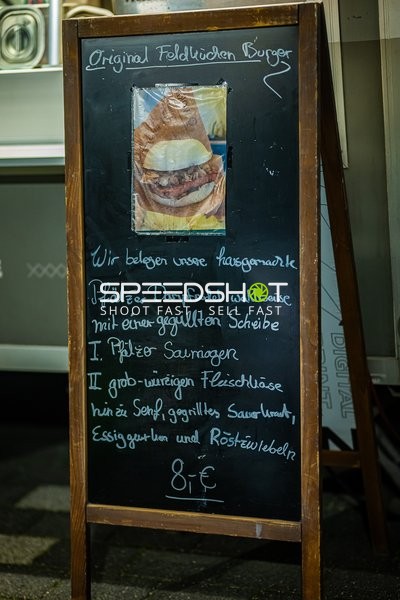 Original Feldküchen Burger
Wir belegen unsere hausgemachte
SPEEDSHOT
SHOOT FAST SELL FAST
mit einer gegrillten Scheibe
I. Pfälzer Saumagen
II grob-würzigen Fleischkäse
hinzu Senf, gegrilltes Sauerkraut,
Essiggurken und Röstzwiebeln
8,-€
DIGITAL